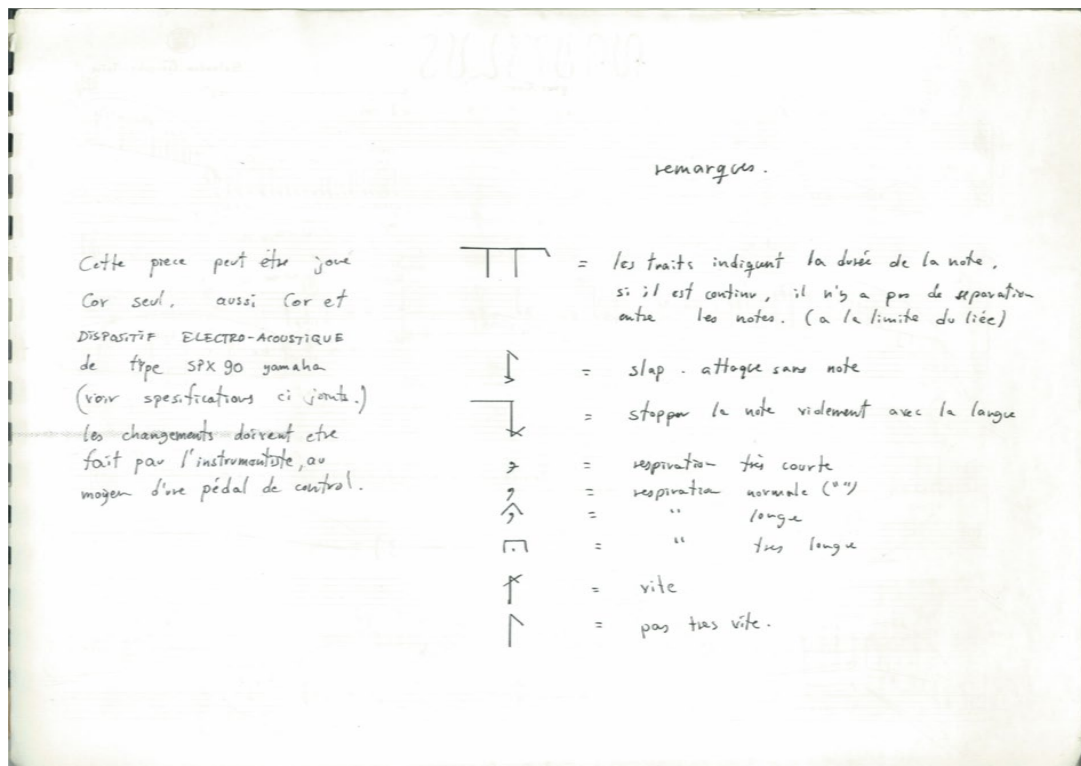 remarques.
Cette piece peut être joué
Cor seul. aussi Cor et
DISPOSITIF ELECTRO-ACOUSTIQUE
de type SPX 90 yamaha
(voir spesifications ci jointe.)
les changements doivent etre
fait par l'instrumentiste, au
moyen d'une pédal de control.
= les traits indiquent la durée de la note.
si il est continu, il n'y a pas de separation
entre les notes. (a la limite du liée)
= slap. attaque sans note
= stopper la note violement avec la langue
= respiration très courte
= respiration normale ("")
= " longe
= " tres longue
= vite
= pas tres vite.